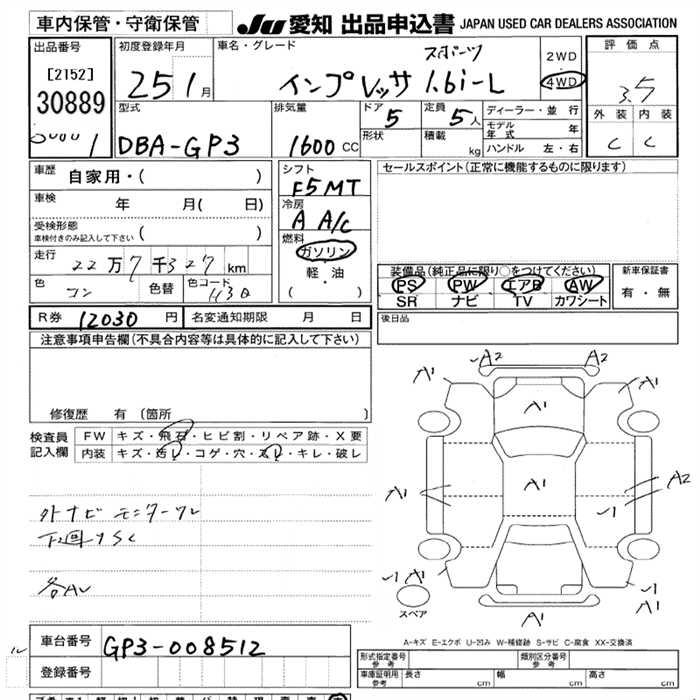 車内保管・守衛保管
JU 愛知 出品申込書 JAPAN USED CAR DEALERS ASSOCIATION
出品番号 初度登録年月 車名・グレード スポーツ 2WD 評価点
[2152] 25 1月 インプレッサ 1.6i-L 4WD 3.5
30889 型式 排気量 ドア 5 定員 5人 ディーラー・並行 外装 内装
1 DBA-GP3 1600 CC 形状 積載 kg モデル年式 年 C C
ハンドル 左・右
車歴 自家用・( ) シフト F5MT セールスポイント(正常に機能するものに限ります)
車検 年 月( 日) 冷房 A A/C
受検形態 車検付きのみ記入して下さい ( )
燃料 ガソリン
走行 22万7千327km 軽・油
装備品(純正品に限り○をつけてください) 新車保証書
色 コン 色替 色コード ( ・ )
PS PW エアB AW 有・無
SR ナビ TV カワシート
R券 12030 円 名変通知期限 月 日 後日品
注意事項申告欄(不具合内容等は具体的に記入して下さい)
修復歴 有 〔箇所 〕
検査員 FW キズ・飛石・ヒビ割・リペア跡・X要
記入欄 内装 キズ・汚レ・コゲ・穴・スレ・キレ・破レ
A1 A2 A2 A1
A1
A1 A1 A2
A1 A1
A1
スペア
A-キズ E-エクボ U-凹み W-補修跡 S-サビ C-腐食 XX-交換済
外ナビ
車台番号 GP3-008512
登録番号
形式指定番号 参考 類別区分番号 参考
車庫証明用 参考 長さ cm 幅 cm 高さ cm